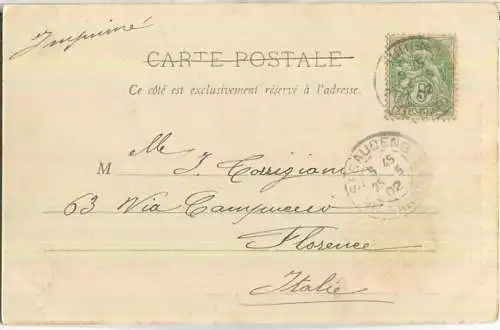 Imprimé
CARTE POSTALE
Ce côté est exclusivement réservé à l'adresse.
M elle J. Corrigiani
63 Via Campuccio
Florence
Italie
ST GAUDENS
25
02